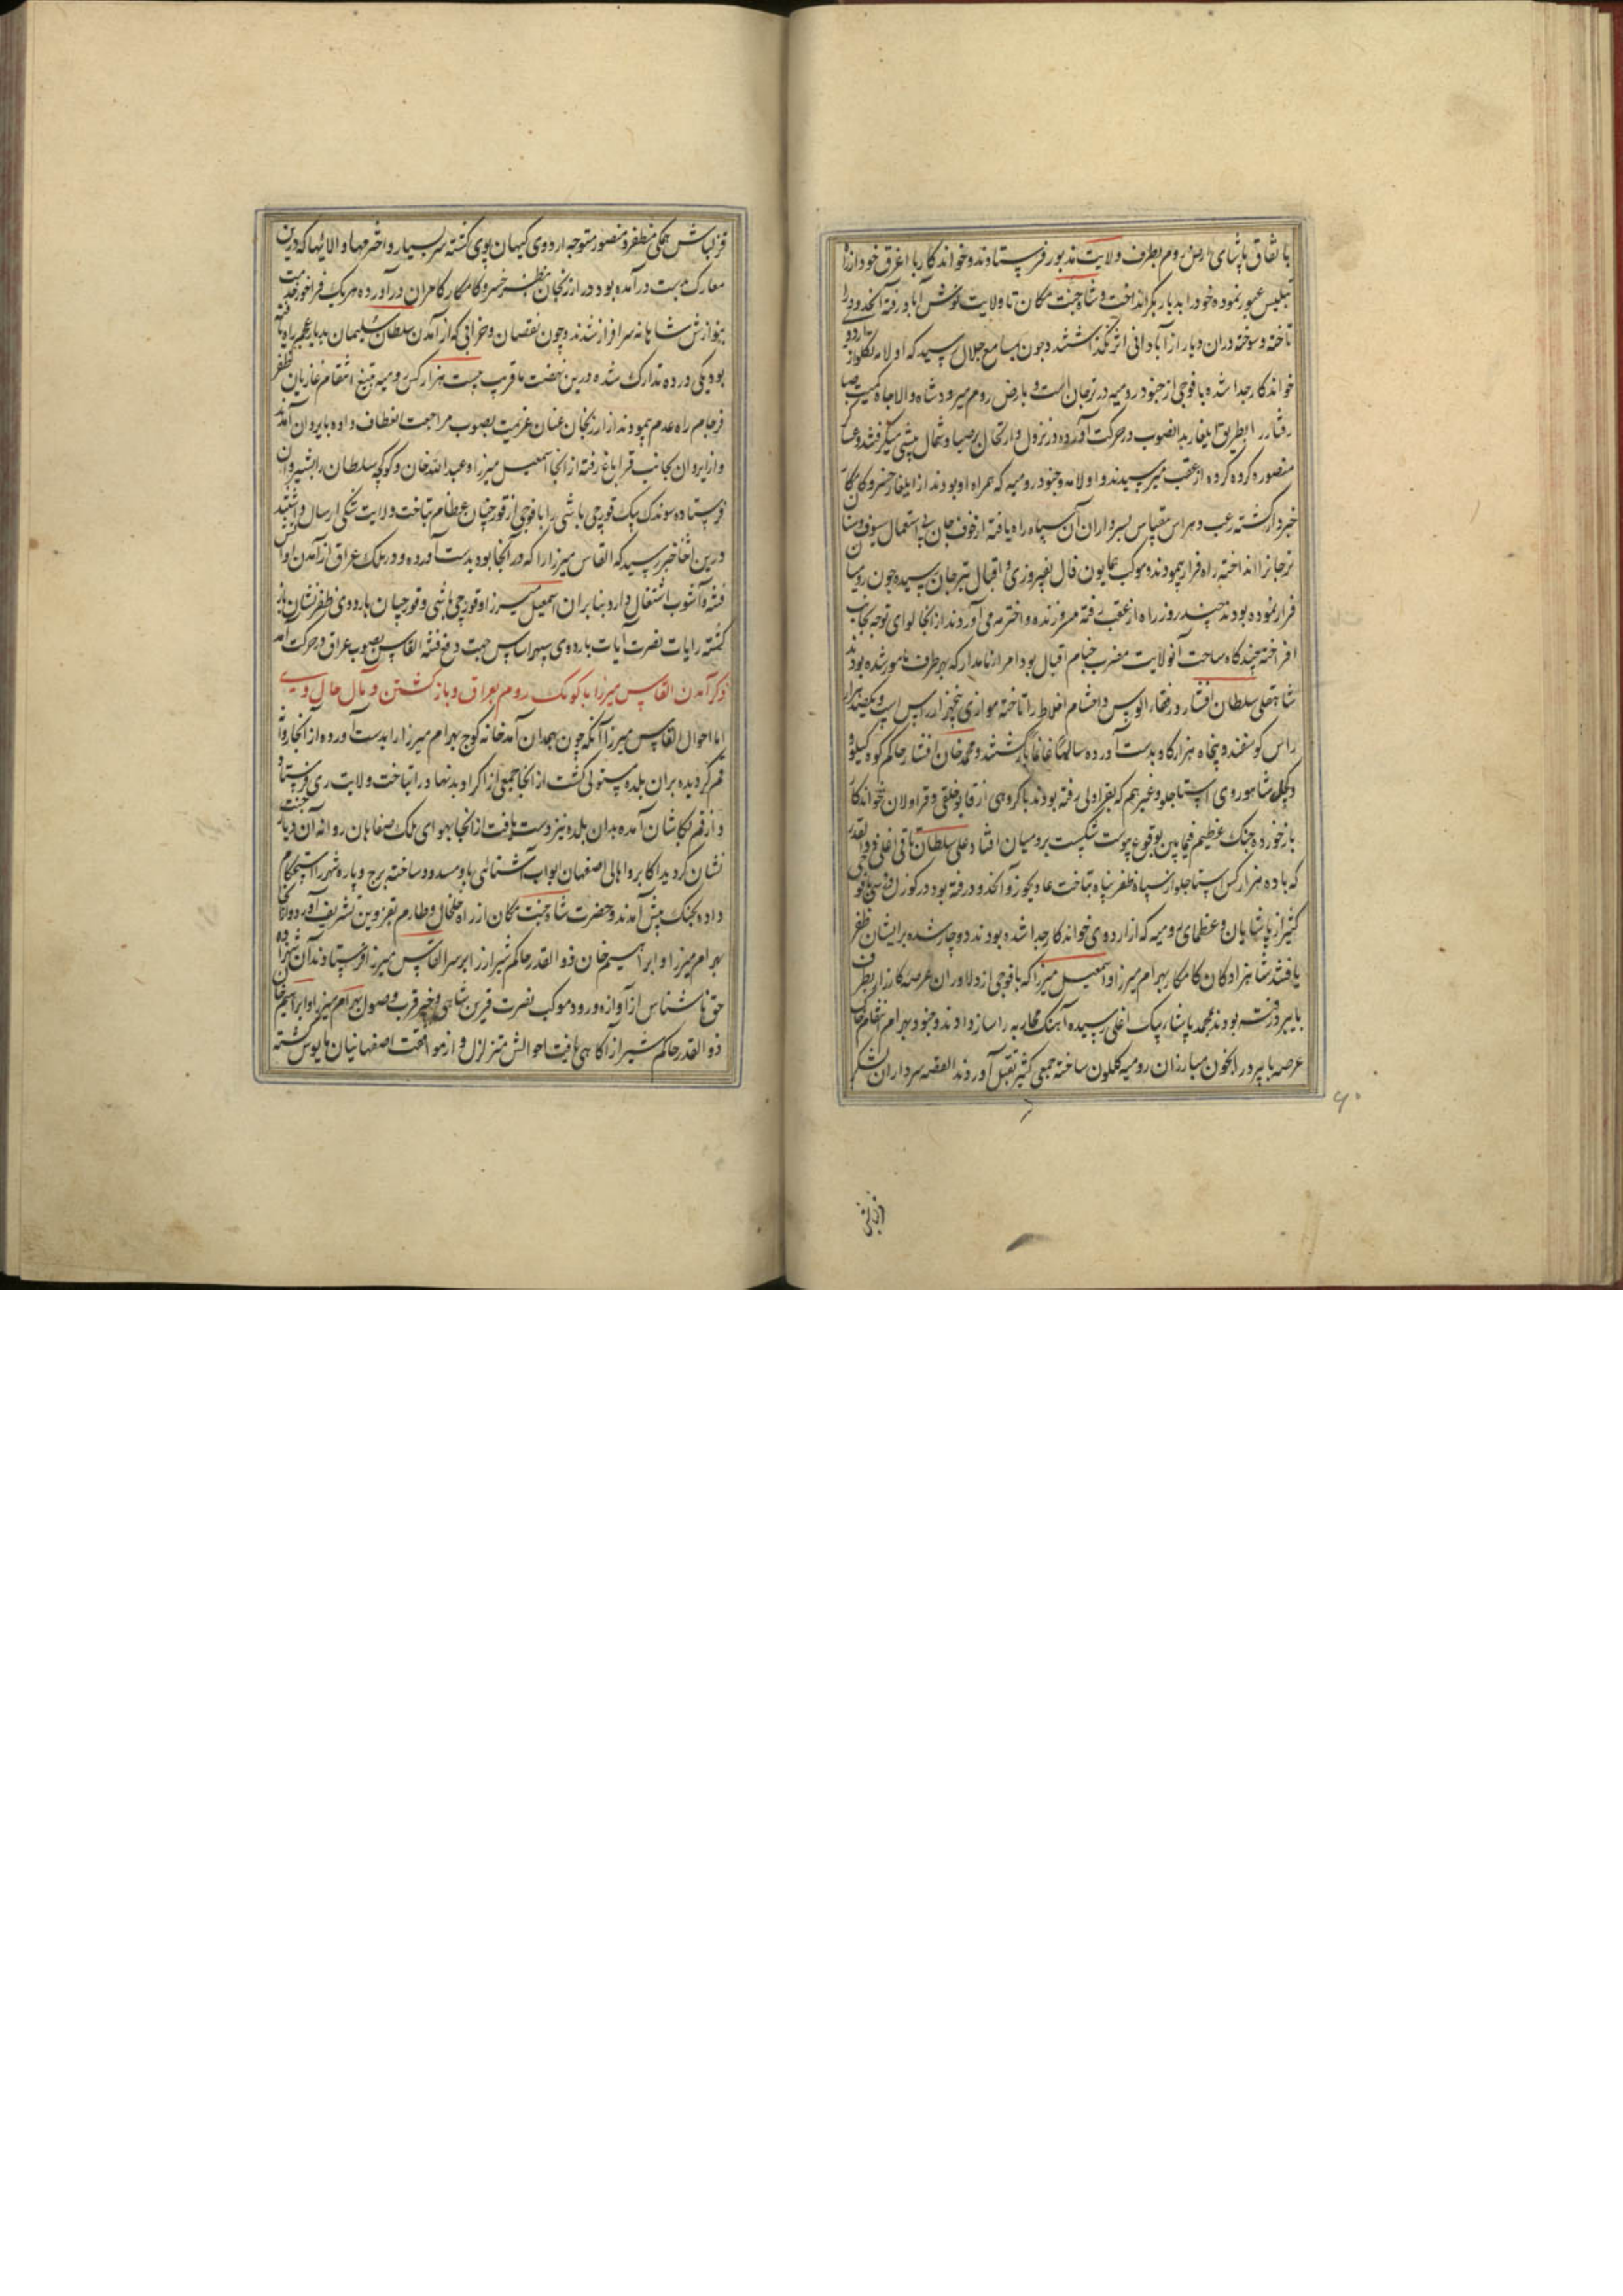 باتفاق پاشای ارض روم بطرف ولایت مذبور فرستادند و خواندکار با اغرق خود از راه
تبلیس عبور نموده خود را بدیار بکر انداخت و شاه جنت مکان تا ولایت خوش آباد رفته آنحدود را
تاخته و سوخته دران دیار از آبادانی اثر نگذاشتند و چون بمسامع جلال رسید که اولامه تکلو از اردوی
خواندکار جدا شده با فوجی از جنود رومیه در ترجان است و بارض روم میرود شاه والاجاه کمیت صبا
رفتار را بطریق ایلغار بدانصوب در حرکت آورده در نزول و ارتحال بر صبا و شمال پیشی میگرفتند و عساکر
منصوره گروه گروه از عقب میرسیدند و اولامه و جنود رومیه که همراه او بودند از ایلغار خسرو کامکار
خبردار گشته رعب و هراس بیقیاس بسرداران آن سپاه راه یافته از خوف جان بی استعمال سیوف و سنان
ترجانرا انداخته راه فرار پیمودند و موکب همایون فال بفیروزی و اقبال بترجان رسیده چون رومیان
فرار نموده بودند چند روز راه از عقب رفته سر و زنده و اخترمه می آوردند از انجا لوای توجه بجانب
افراخته چندگاه ساحت آنولایت مضرب خیام اقبال بود امراء نامدار که بهر طرف مامور شده بودند
شاهقلی سلطان افشار و رفقاء الوس و احشام اخلاط را تاخته موازی پنجهزار راس اسب و یکصد هزار
راس گوسفند و پنجاه هزار گاو بدست آورده سالما غانما بازگشتند و محمد خان افشار حاکم کوه کیلو
و شاهوردی استاجلو و غیرهم که بقراولی رفته بودند با گروهی از قراولان خواندکار
باز خورده جنگ عظیم فیمابین بوقوع پیوست شکست برومیان افتاد علی سلطان تاتی اغلی ذوالقدر
که با ده هزار کس استاجلو از سپاه ظفر پناه بتاخت عادلجوز و آنحدود رفته بود
کثیر از پاشایان و عظمای رومیه که از اردوی خواندکار جدا شده بودند دوچار شده بر ایشان ظفر
یافتند شاهزادگان کامکار بهرام میرزا و اسمعیل میرزا که با فوجی از دلاوران عرصه کارزار بطرف
بایبرد رفته بودند بمحمد پاشا بیک اغلی رسیده آهنگ محاربه را ساز دادند و جنود بهرام انتقام خاک
عرصه بایبرد را بخون مبارزان رومیه گلگون ساخته جمعی کثیر بقتل آوردند القصه سرداران لشکر
۶۰
قزلباش
قزلباش همگی مظفر و منصور متوجه اردوی کیهان پوی گشته سر بسیار و اخترمها و الائیها که درین
معارک بدست درآمده بود در ارزنجان بنظر خسرو کامکار کامران درآورده هر یک فراخور خدمت
بنوازش شاهانه سرافراز شدند و چون نقصان و خرابی که از آمدن سلطان سلیمان بدیار عجم راه یافته
بود یکی در ده تدارک شده درین نهضت ما قریب بیست هزار کس رومیه بتیغ انتقام غازیان ظفر
فرجام راه عدم پیمودند از ارزنجان عنان عزیمت بصوب مراجعت انعطاف داده بایروان آمدند
و از ایروان بجانب قراباغ رفته از انجا اسمعیل میرزا و عبدالله خان و کوکچه سلطان را بشیروان
فرستاده سوندک بیک قورچی باشی را با فوجی از قورچیان عظام بتاخت ولایت شکی ارسال داشتند
درین اثنا خبر رسید که القاس میرزا را که در آنجا بود بدست آورده و در ملک عراق از آمدن او آتش
فتنه و آشوب اشتعال دارد بنابران اسمعیل میرزا و قورچی باشی و قورچیان باردوی ظفر نشان باز
گشته رایات نصرت آیات باردوی سپهر اساس جهت دفع فتنه القاس بصوب عراق در حرکت آمد
ذکر آمدن القاس میرزا با کومک روم بعراق و بازگشتن و مآل حال وی
اما احوال القاس میرزا آنکه چون بهمدان آمد خانه کوچ بهرام میرزا را بدست آورده از آنجا روانه
قم گردیده بران بلده مستولی گشت از انجا جمعی از اکراد بدنهاد را بتاخت ولایت ری فرستاد
و از قم بکاشان آمده بدان بلده نیز دست یافت از انجا بهوای ملک صفاهان روانه آن دیار جنت
نشان گردید اکابر و اهالی اصفهان ابواب آشنائی باو مسدود ساخته برج و باره شهر را استحکام
داده بجنگ پیش آمدند و حضرت شاه جنت مکان از راه خلخال و طارم بقزوین تشریف آورده از انجا
بهرام میرزا و ابراهیم خان ذوالقدر حاکم شیراز را بر سر القاس میرزا فرستادند آن شهزاده
حق ناشناس از آوازه ورود موکب نصرت قرین شاهی و خبر قرب وصول بهرام میرزا و ابراهیم خان
ذوالقدر حاکم شیراز آگاهی یافت احوالش متزلزل و از موافقت اصفهانیان مایوس گشته